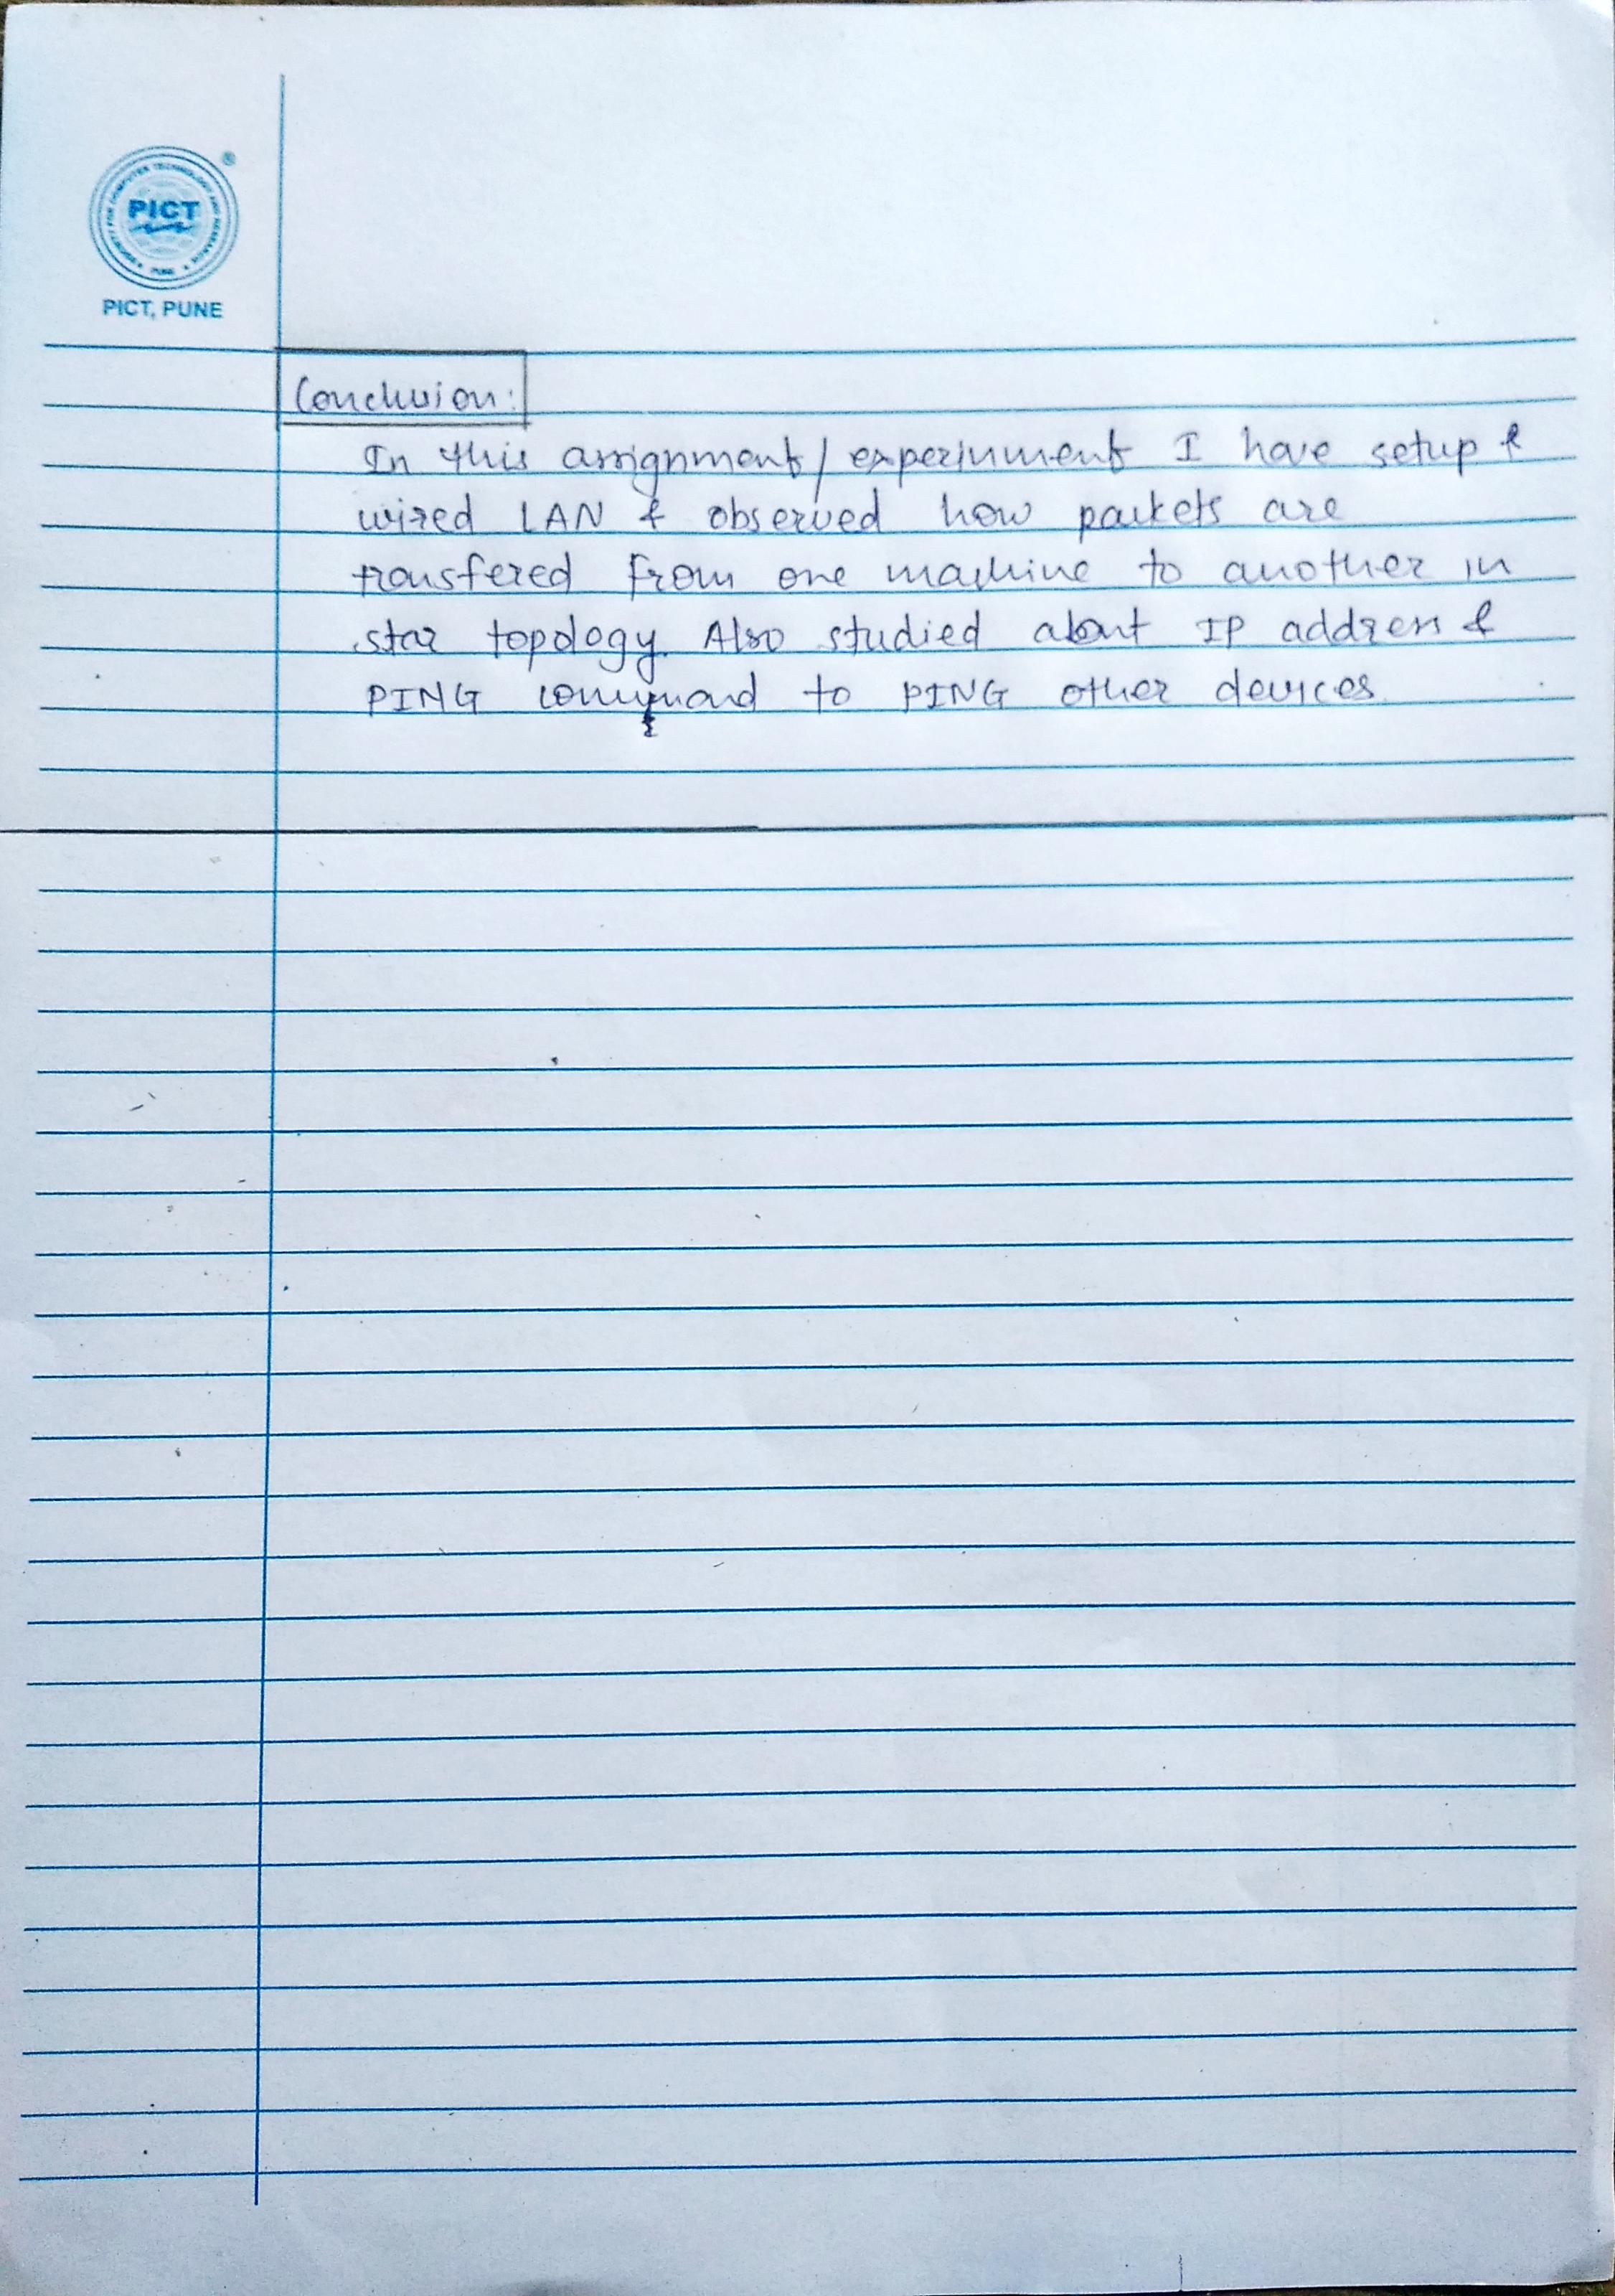 PICT
PICT, PUNE
Conclusion:
In this assignment/experinment I have setup &
wired LAN & observed how packets are
transfered from one machine to another in
star topology. Also studied about IP address &
PING command to PING other devices.